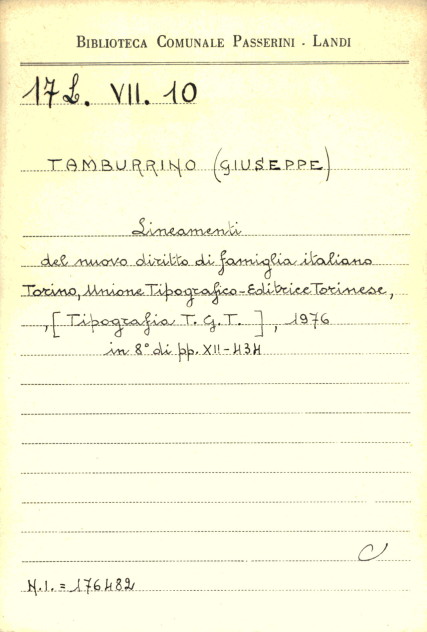 BIBLIOTECA COMUNALE PASSERINI - LANDI
17 L. VII. 10
TAMBURRINO (GIUSEPPE)
Lineamenti
del nuovo diritto di famiglia italiano
Torino, Unione Tipografico-Editrice Torinese,
, [Tipografia T. G. T. ], 1976
in 8° di pp. XII-434
C
N.I. = 176482